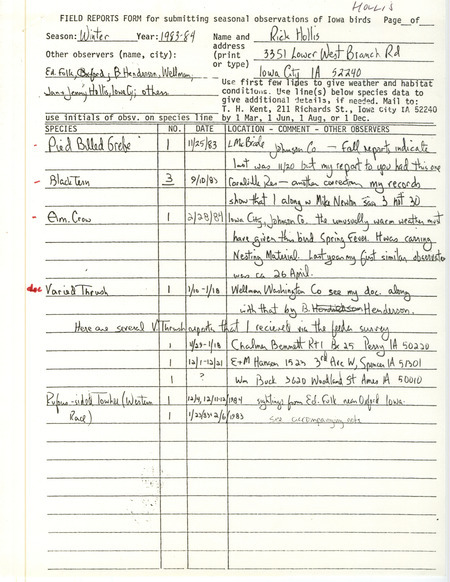 HOLLIS
FIELD REPORTS FORM for submitting seasonal observations of Iowa birds Page of
Season: Winter Year: 1983-84 Name and Rick Hollis
address 3351 Lower West Branch Rd
Other observers (name, city): (print
or type) Iowa City IA 52240
Ed. Folk, Oxford; B Henderson, Wellman;
Jans Jenny Hollis, Iowa City; others
Use first few lines to give weather and habitat
conditions. Use line(s) below species data to
give additional details, if needed. Mail to:
T. H. Kent, 211 Richards St., Iowa City IA 52240
use initials of obsv. on species line by 1 Mar, 1 Jun, 1 Aug, or 1 Dec.
SPECIES NO. DATE LOCATION - COMMENT - OTHER OBSERVERS
Pied Billed Grebe 1 11/25/83 L McBride Johnson Co - Fall reports indicate
last was 11/20 but my report to you had this one
- Black Tern 3 9/10/83 Coralville Res - another correction my records
show that I along w Mike Newlon saw 3 not 30
- Am. Crow 1 2/28/84 Iowa City, Johnson Co. the unusually warm weather must
have given this bird Spring Fever. It was carrying
Nesting Material. Last year my first similar observation
was ca 26 April.
doc Varied Thrush 1 1/10-1/18 Wellman Washington Co see my doc. along
with that by B. Henderson.
Here are several V Thrush reports that I recieved via the feeder survey
1 11/29-1/18 Chalmer Bennett Rt 1 Bx 25 Perry IA 50220
1 12/1-12/21 E+M Hansen 1523 3rd Ave W, Spencer IA 51301
1 ? Wm Buck 3620 Woodland St Ames IA 50010
Rufous-sided Towhee (Western 1 sightings from Ed. Folk near Oxford Iowa.
Race) 1 see accompanying note